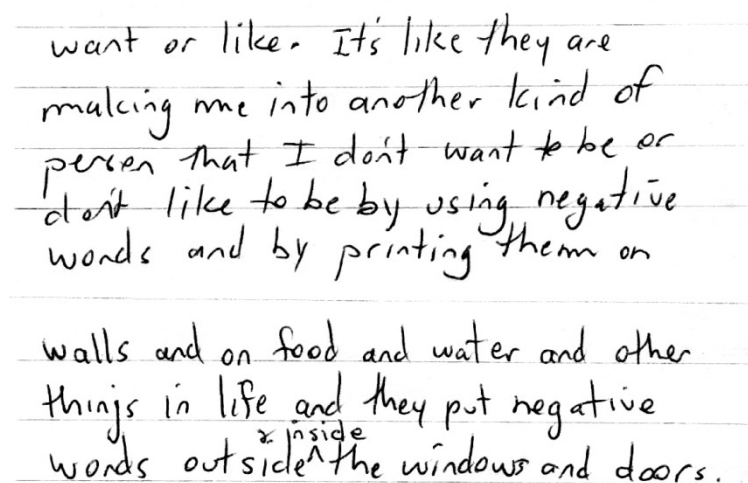 want or like. It's like they are
making me into another kind of
person that I don't want to be or
don't like to be by using negative
words and by printing them on
walls and on food and water and other
things in life and they put negative
& inside
words outside ^ the windows and doors.